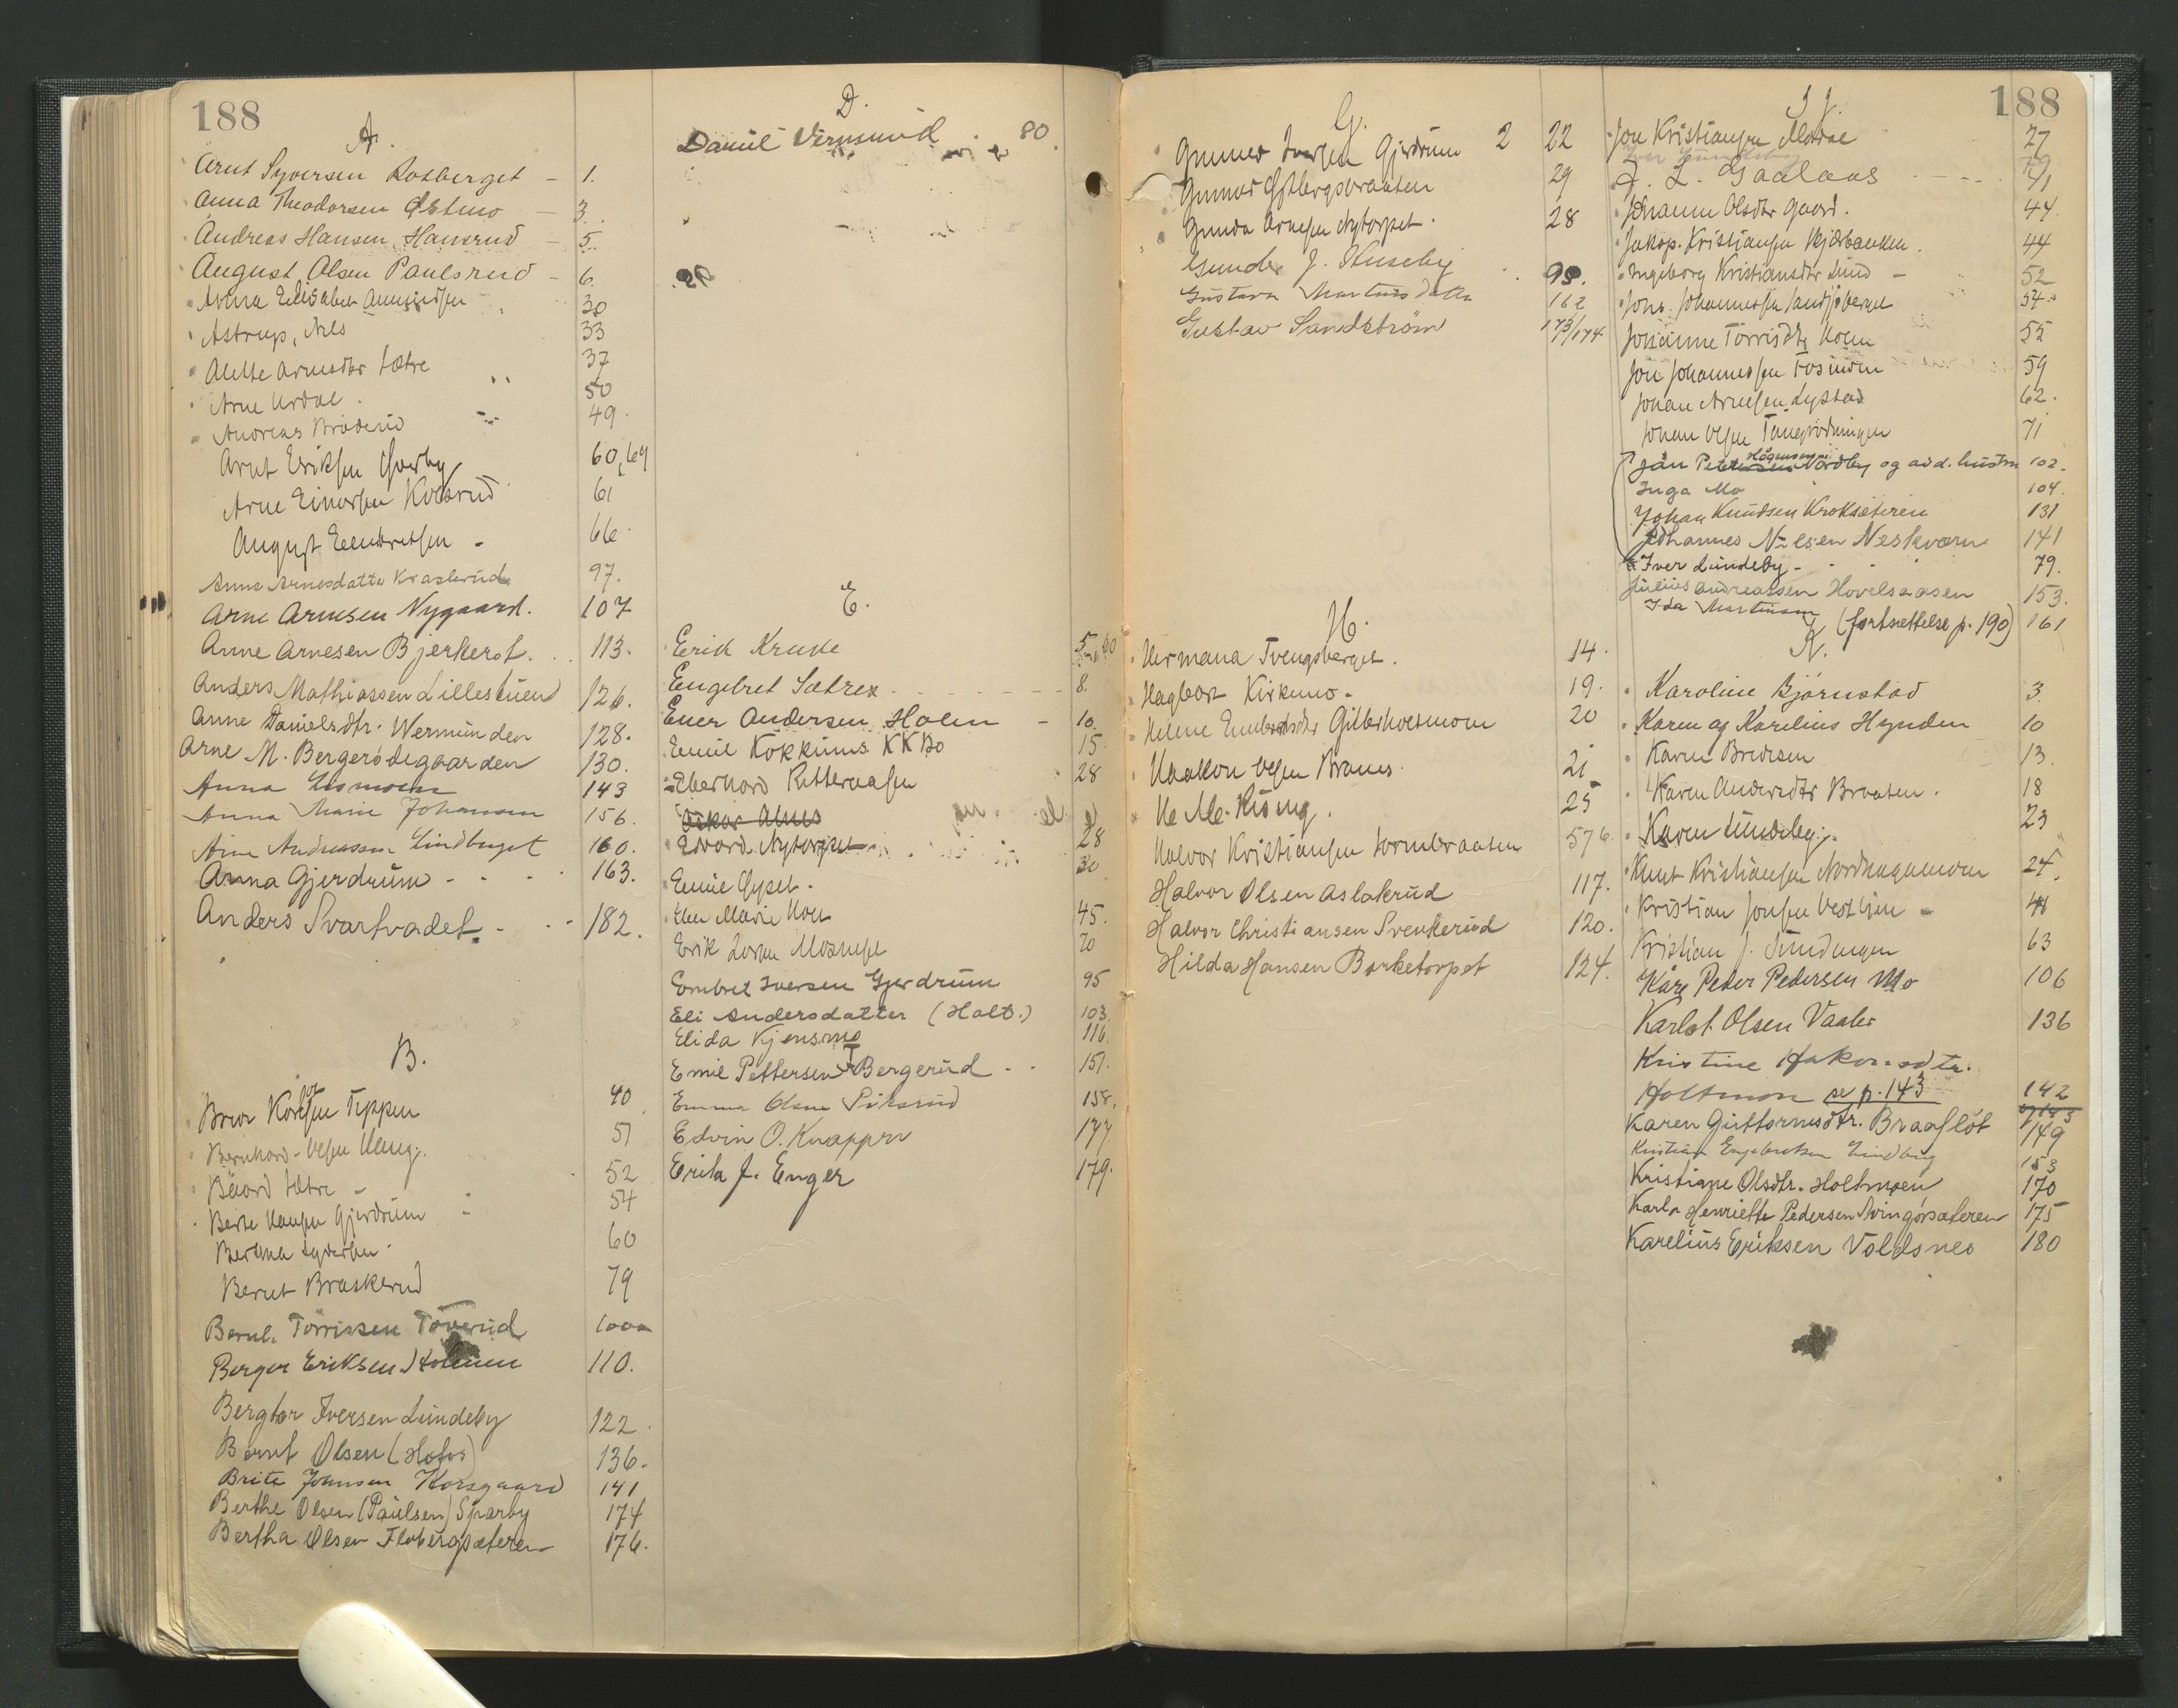 188
A.
Arnt Syversen Rotberget - 1.
Anna Theodorsen Østmo - 3.
Andreas Hansen Hansrud - 5.
August Olsen Paulsrud - 6.
Anna Elisabet Amundsen 30
Astrup, Nils 33
Alette Arnesdtr Sætre 37
Arne Urdal 50
Andreas Brøderud 49.
Arnt Eriksen 60, 69
Arne Einarsen Kolsrud 61
August Eilertsen - 66
Anne Arnesdatter Kraslerud 97.
Arne Arnesen Nygaard. 107
Anne Arnesen Bjerkerot. 113.
Anders Mathiassen Lillestuen 126.
Anne Danielsdtr. Wermunden 128.
Arne M. Bergerødegaarden 130.
Anna 143
Anna Marie Johansen 156.
Arne Andreassen Lindberget 160.
Anna Gjerdrum - 163.
Anders Svartvadet. - 182.
B.
Teppen 40
Bernhard Olsen Haug. 51
Baard Sætre - 52
Berte Hansen Gjerdrum - 54
Bertha Syversen 60
Bernt Braskerud 79
Bernh. Torrissen Toverud 100a
Berger Eriksen Holmen 110.
Bergtor Iversen Lundeby 122.
Bernt Olsen (Hofos) 136.
Brita Johnsen Korsgaard 141
Berthe Olsen (Paulsen) Sparby 174
Bertha Olsen Flobergsæteren 176.
D.
Daniel Vermund 80.
E.
Erik Kruke 5
Engebret Sætre 8.
Einer Andersen Holen - 10.
Emil Kokkims KKBo 15.
Eberhard Petteraasen 28
Oskar Alnes
Edvard Nytorpet 28
Emil 30
Elen Marie Moen 45.
Erik Larsen 70
Embret Iversen Gjerdrum 95
Eli Andersdatter (Holt.) 103.
Elida Kjensmo 116.
Emil Pettersen Bergerud - 151.
Emma Olsen Piksrud 158.
Edvin O. Knappen 177
Erik J. Enger 179.
188
G.
Gunner Iversen Gjerdrum 2 22
Gunner 29
Gunda Arnesen Nytorpet. 28
Gunder J. Huseby 98.
Gustava Martinsdatter 162
Gustav Sandström 173/174
H.
Hermana Tvengsberget. 14.
Hagbart Kirkemo - 19.
Helene Embretsdtr Gilbshoesmoen 20
Haakon Olsen Branes. 21
H. M. Hising. 25
Halvor Kristiansen Kornbraaten 576.
Halvor Olsen Aslakrud 117.
Halvor Christiansen Svenkerud 120.
Hilda Hansen Barketorpet 124.
I J.
Jon Kristiansen Mordal 27
J. L. Gaalaas - - - 71
Johanne Olsdtr Gaard. 44
Jakop. Kristiansen Kjærbakken. 44
Ingeborg Kristiansdtr Lund - 52
Johs. Johannessen Sandsjøberget 54.
Johanne Torrisdtr Holen 55
Jon Johannessen Fosinden 59
Johan Arnesen Lystad 62.
Johan Olsen Tangrødningen 71
Jan Petter Høgensen Nordby og avd. hustru 102.
Inga Mo 104.
Johan Knudsen Kroksæteren 131
Johannes Nilsen Neskværn 141
Iver Lundeby - 79.
Julius Andreassen Hovelsaasen 153.
Ida Martinsen (fortsettelse p. 190) 161
K.
Karoline Bjørnstad 3.
Karen og Karelius Hynden 10
Karen Bredesen 13.
Karen Andersdtr Braaten. 18
Karen Lundeby. 23
Knut Kristiansen Nordhagamoen 24.
Kristian Jonsen Vestlien -
Kristian J. 63
Kåre Peder Pedersen Mo 106
Karlot Olsen Vaaler 136
Kristine Hakonsdtr.
Holtmon se p. 143 142
Karen Guttormsdtr. Braaflöt 149
Kristian Engebretsen Lindberg 153
Kristiane Olsdtr. Holtmoen 170
Karl Henriette Pedersen Svingørsæteren 175
Karelius Eriksen Voldsnes 180